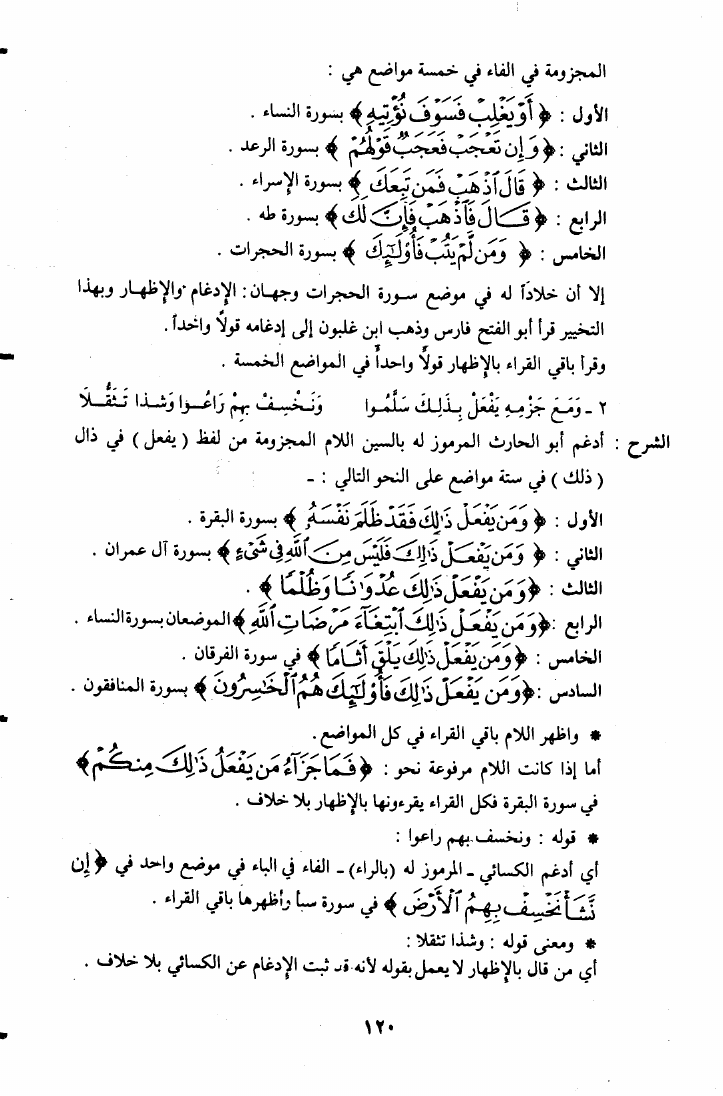 المجزومة في الفاء في خمسة مواضع هي :
الأول : ﴿ أَوْ يَغْلِبْ فَسَوْفَ نُؤْتِيهِ ﴾ بسورة النساء .
الثاني : ﴿ وَإِن تَعْجَبْ فَعَجَبٌ قَوْلُهُمْ ﴾ بسورة الرعد .
الثالث : ﴿ قَالَ ٱذْهَبْ فَمَن تَبِعَكَ ﴾ بسورة الإسراء .
الرابع : ﴿ قَالَ فَٱذْهَبْ فَإِنَّ لَكَ ﴾ بسورة طه .
الخامس : ﴿ وَمَن لَّمْ يَتُبْ فَأُوْلَٰٓئِكَ ﴾ بسورة الحجرات .
إلا أن خلاداً له في موضع سورة الحجرات وجهان : الإدغام والإظهار وبهذا
التخيير قرأ أبو الفتح فارس وذهب ابن غلبون إلى إدغامه قولاً واحداً .
وقرأ باقي القراء بالإظهار قولاً واحداً في المواضع الخمسة .
٢ - وَمَعَ جَزْمِهِ يَفْعَلْ بِذَلِكَ سَلَّمُوا وَنَخْسِفْ بِهِمْ رَاعُوا وَشَذا تَثَقُّلَا
الشرح : أدغم أبو الحارث المرموز له بالسين اللام المجزومة من لفظ ( يفعل ) في ذال
( ذلك ) في ستة مواضع على النحو التالي : -
الأول : ﴿ وَمَن يَفْعَلْ ذَٰلِكَ فَقَدْ ظَلَمَ نَفْسَهُۥ ﴾ بسورة البقرة .
الثاني : ﴿ وَمَن يَفْعَلْ ذَٰلِكَ فَلَيْسَ مِنَ ٱللَّهِ فِى شَىْءٍ ﴾ بسورة آل عمران .
الثالث : ﴿ وَمَن يَفْعَلْ ذَٰلِكَ عُدْوَٰنًا وَظُلْمًا ﴾ .
الرابع : ﴿ وَمَن يَفْعَلْ ذَٰلِكَ ٱبْتِغَآءَ مَرْضَاتِ ٱللَّهِ ﴾ الموضعان بسورة النساء .
الخامس : ﴿ وَمَن يَفْعَلْ ذَٰلِكَ يَلْقَ أَثَامًا ﴾ في سورة الفرقان .
السادس : ﴿ وَمَن يَفْعَلْ ذَٰلِكَ فَأُوْلَٰٓئِكَ هُمُ ٱلْخَٰسِرُونَ ﴾ بسورة المنافقون .
* واظهر اللام باقي القراء في كل المواضع .
أما إذا كانت اللام مرفوعة نحو : ﴿ فَمَا جَزَآءُ مَن يَفْعَلُ ذَٰلِكَ مِنكُمْ ﴾
في سورة البقرة فكل القراء يقرءونها بالإظهار بلا خلاف .
* قوله : ونخسف بهم راعوا :
أي أدغم الكسائي - المرموز له (بالراء) - الفاء في الباء في موضع واحد في ﴿ إِن
نَّشَأْ نَخْسِفْ بِهِمُ ٱلْأَرْضَ ﴾ في سورة سبأ وأظهرها باقي القراء .
* ومعنى قوله : وشذا تثقلا :
أي من قال بالإظهار لا يعمل بقوله لأنه قد ثبت الإدغام عن الكسائي بلا خلاف .
١٢٠